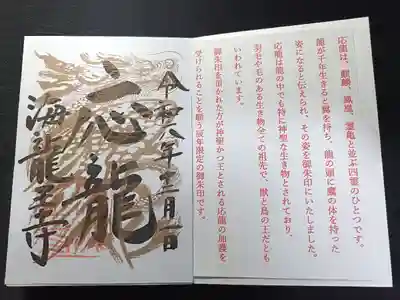 応龍は、麒麟、鳳凰、霊亀と並ぶ四霊のひとつです。
龍が千年生きると翼を持ち、龍の頭に鷹の体を持った
姿になると伝えられ、その姿を御朱印にいたしました。
応龍は龍の中でも特に神聖な生き物とされており、
羽毛や毛のある生き物全ての祖先で、獣と鳥の王だとも
いわれています。
御朱印を頂かれた方が神聖かつ王とされる応龍の加護を
受けられることを願う辰年限定の御朱印です。
令和六年十二月一日
応龍
海龍王寺